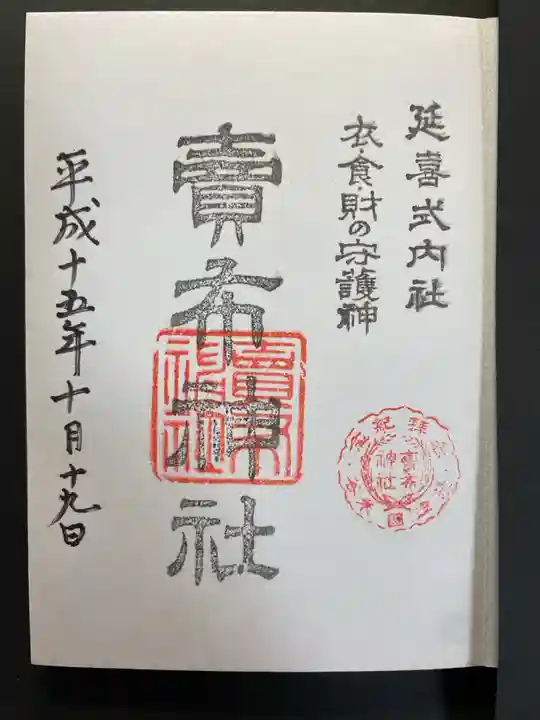 延喜式内社
衣・食・財の守護神
賣布神社
賣布神社
平成十五年十月十九日